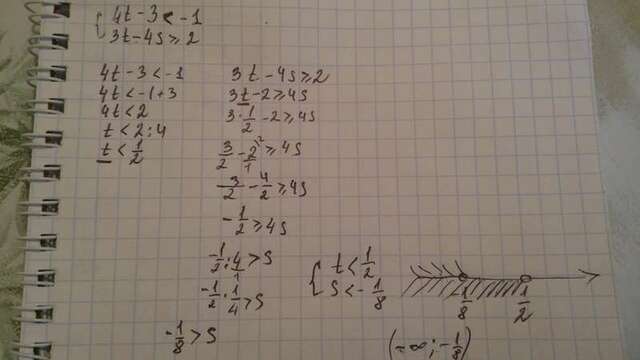 4t-3<-1
3t-4s≥2
4t-3<-1
4t<-1+3
4t<2
t<2:4
t<1/2
3t-4s≥2
3t-2≥4s
3·1/2-2≥4s
3/2-2/1≥4s
3/2-4/2≥4s
-1/2≥4s
-1/2:4/1>s
-1/2·1/4>s
-1/8>s
t<1/2
s<-1/8
1/8 1/2
(-∞;-1/8)